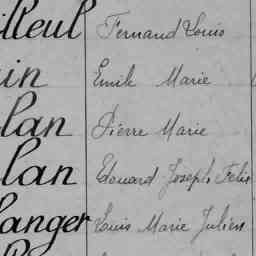 illeul Fernand Louis
in Emile Marie
lan Pierre Marie
lan Edouard Joseph Felix
anger Louis Marie Julien